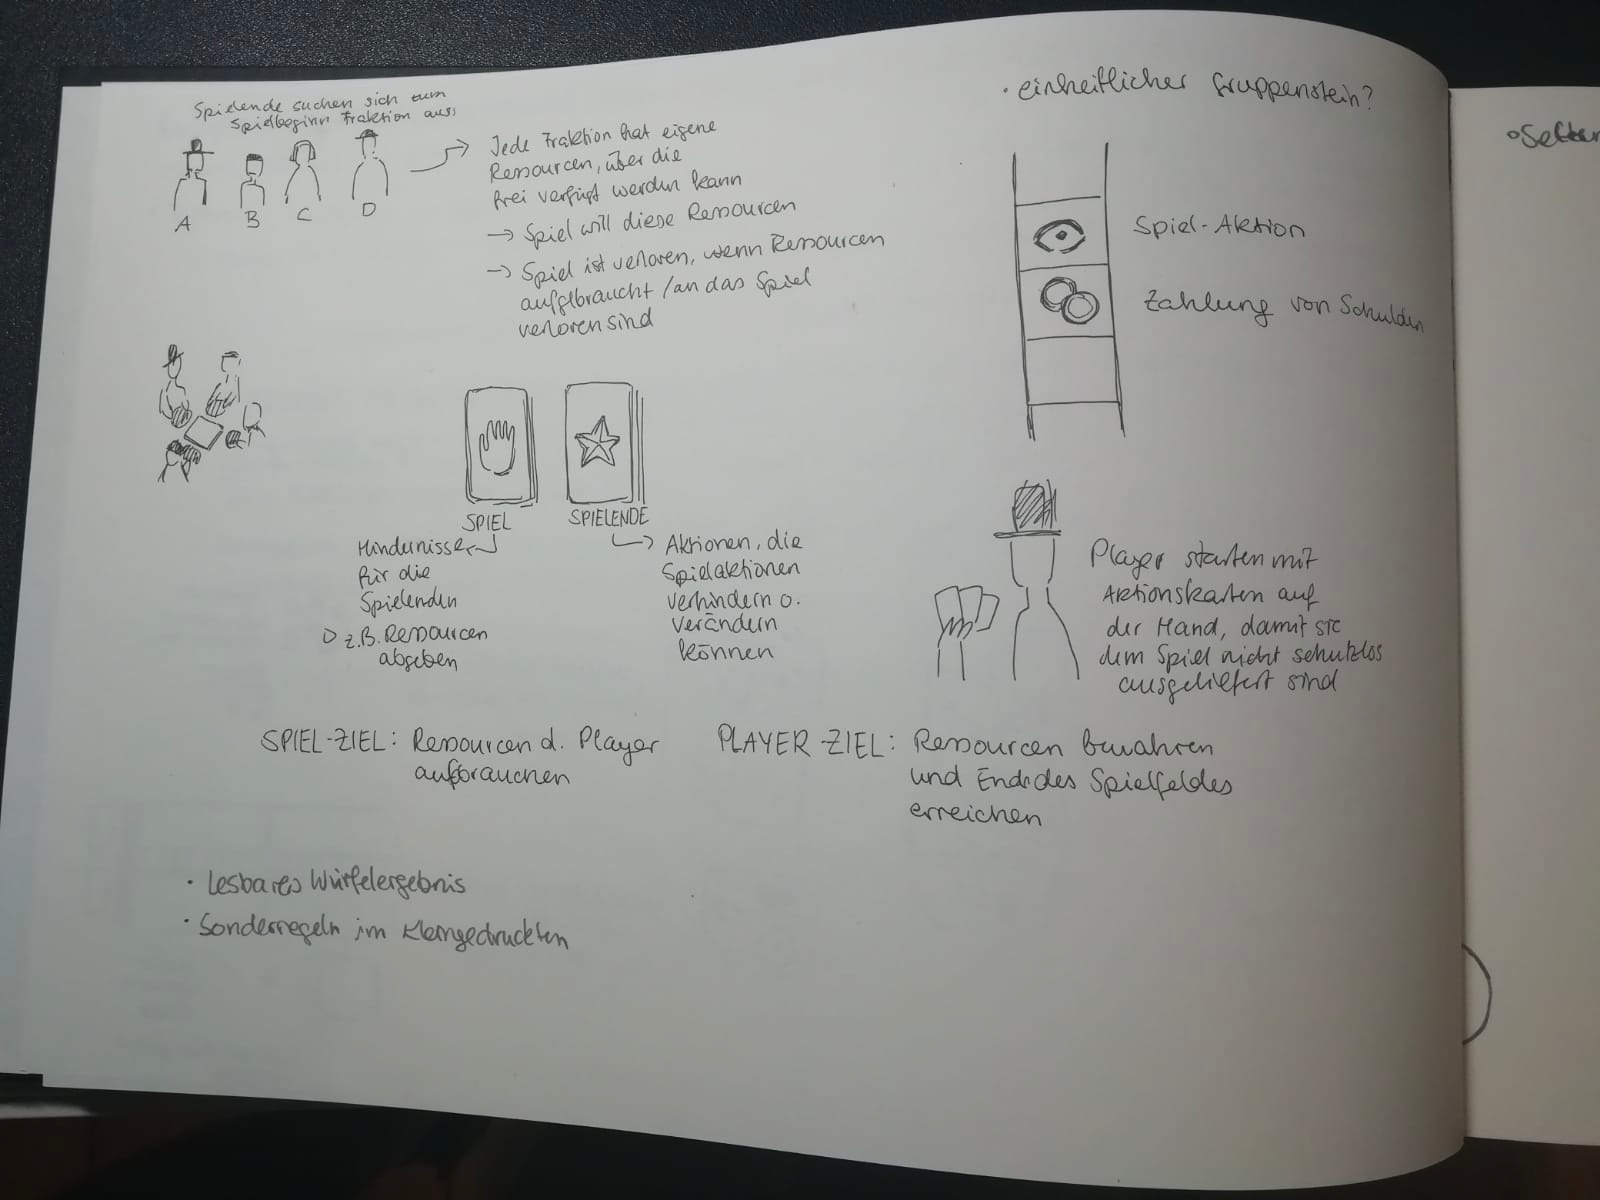 Spielende suchen sich zum
Spielbeginn Fraktion aus:
A
B
C
D
Jede Fraktion hat eigene
Ressourcen, über die
frei verfügt werden kann
→ Spiel will diese Ressourcen
→ Spiel ist verloren, wenn Ressourcen
aufgebraucht / an das Spiel
verloren sind
• einheitlicher Gruppenstein?
Spiel-Aktion
Zahlung von Schulden
SPIEL
Hindernisse
für die
Spielenden
z.B. Ressourcen
abgeben
SPIELENDE
Aktionen, die
Spielaktionen
verhindern o.
verändern
können
Player starten mit
Aktionskarten auf
der Hand, damit sie
dem Spiel nicht schutzlos
ausgeliefert sind
SPIEL-ZIEL: Ressourcen d. Player
aufbrauchen
PLAYER-ZIEL: Ressourcen bewahren
und Ende des Spielfeldes
erreichen
• Lesbares Würfelergebnis
• Sonderregeln im Kleingedruckten